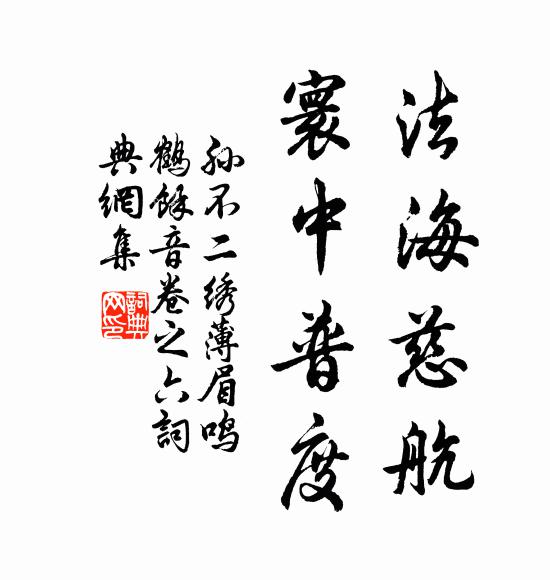 法海慈航
寰中普度
孙不二绣薄眉鸣
鶴餘音卷之六詞
典網集
詞典网印